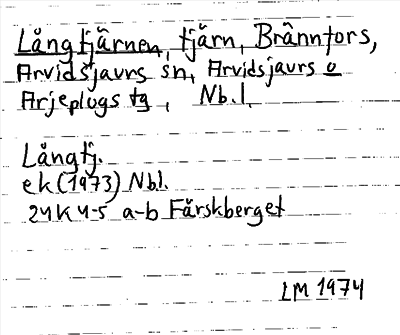 Långtjärnen, tjärn, Brännfors,
Arvidsjaurs sn, Arvidsjaurs o
Arjeplogs tg, Nb.l.
Långtj.
ek (1973) Nbl.
24K 4-5 a-b Fårskberget
LM 1974